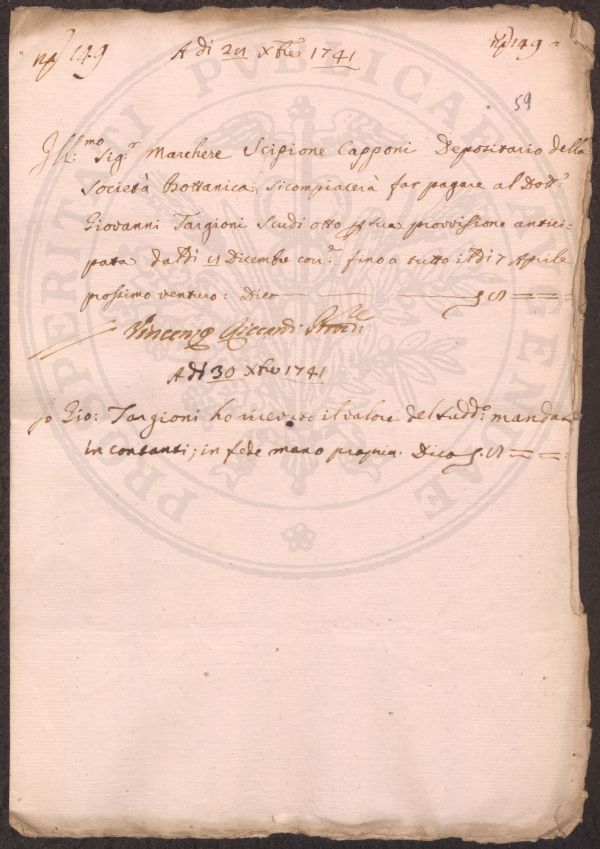 nº 149
A dì 24 Xbre 1741
nº 149
59
Ill:mo Sig:r Marchese Scipione Capponi Depositario della
Società Bottanica, si compiacerà far pagare al Dott:
Giovanni Targioni Scudi otto p sua provvisione antici-
pata dal dì 11 Dicembre cor:te fino a tutto il dì 7 Aprile
prossimo venturo: Dico
Vincenzo Riccardi
A dì 30 Xbre 1741
Io Gio: Targioni ho ricevuto il valore del sudd:o mandato
in contanti; in fede mano propria. Dico
PROSPERITATI PUBLICAE AUGENDAE